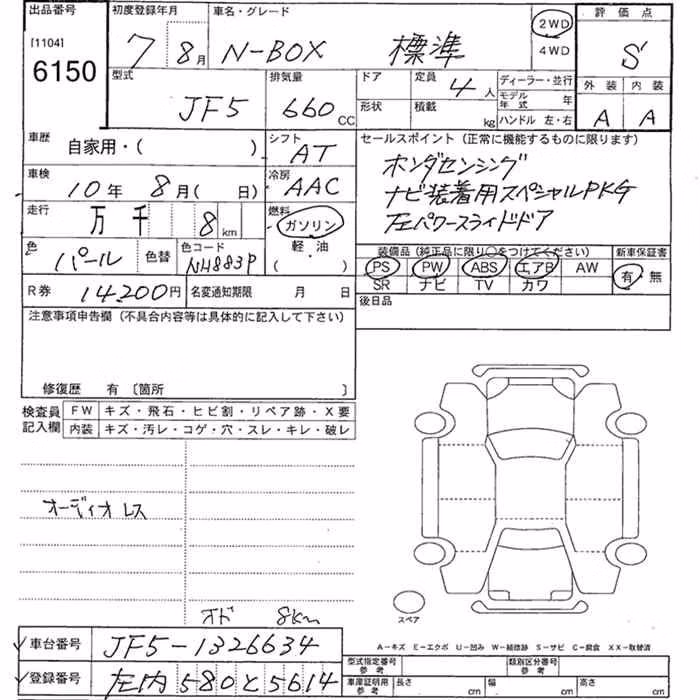 出品番号
[1104]
6150
初度登録年月
7 8月
車名・グレード
N-BOX 標準
2WD
4WD
評価点
S
型式
JF5
排気量
660 CC
ドア
定員
4人
形状
積載
kg
ディーラー・並行
モデル年式 年
ハンドル 左・右
外装 内装
A A
車歴
自家用・( )
シフト
AT
セールスポイント (正常に機能するものに限ります)
ホンダセンシング
ナビ装着用スペシャルPKG
左パワースライドドア
車検
10年 8月( 日)
冷房
AAC
走行
万 千 8km
燃料
ガソリン
軽・油
( )
色
パール
色替
色コード
NH883P
装備品 (純正品に限り〇をつけてください)
新車保証書
PS PW ABS エアB AW
有・無
SR ナビ TV カワ
R券
14,200円
名変通知期限 月 日
後日品
注意事項申告欄 (不具合内容等は具体的に記入して下さい)
修復歴 有 〔箇所 〕
検査員記入欄
FW キズ・飛石・ヒビ割・リペア跡・X要
内装 キズ・汚レ・コゲ・穴・スレ・キレ・破レ
オーディオレス
オド 8km
スペア
車台番号
JF5-1326634
登録番号
庄内 580 と 5614
A-キズ E-エクボ U-凹み W-補修跡 S-サビ C-腐食 XX-取替済
型式指定番号 参考
類別区分番号 参考
車庫証明用 参考
長さ cm
幅 cm
高さ cm